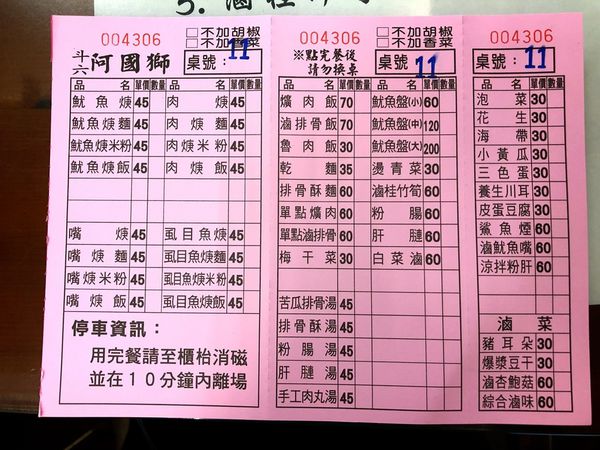 5. 滷
004306
□不加胡椒
□不加香菜
斗六 阿國獅
桌號：11
品名 單價 數量 品名 單價 數量
魷魚焿 45 肉焿 45
魷魚焿麵 45 肉焿麵 45
魷魚焿米粉 45 肉焿米粉 45
魷魚焿飯 45 肉焿飯 45
嘴焿 45 虱目魚焿 45
嘴焿麵 45 虱目魚焿麵 45
嘴焿米粉 45 虱目魚焿米粉 45
嘴焿飯 45 虱目魚焿飯 45
停車資訊：
用完餐請至櫃枱消磁
並在10分鐘內離場
004306
□不加胡椒
□不加香菜
※點完餐後
請勿換桌
桌號：11
品名 單價 數量 品名 單價 數量
爌肉飯 70 魷魚盤(小) 60
滷排骨飯 70 魷魚盤(中) 120
魯肉飯 30 魷魚盤(大) 200
乾麵 35 燙青菜 30
排骨酥麵 60 滷桂竹筍 60
單點爌肉 60 粉腸 60
單點滷排骨 60 肝腱 60
梅干菜 30 白菜滷 60
苦瓜排骨湯 45
排骨酥湯 45
粉腸湯 45
肝腱湯 45
手工肉丸湯 45
004306
桌號：11
品名 單價 數量
泡菜 30
花生 30
海帶 30
小黃瓜 30
三色蛋 30
養生川耳 30
皮蛋豆腐 30
鯊魚煙 60
滷魷魚嘴 60
涼拌粉肝 60
滷菜
豬耳朵 30
爆漿豆干 30
滷杏鮑菇 60
綜合滷味 60